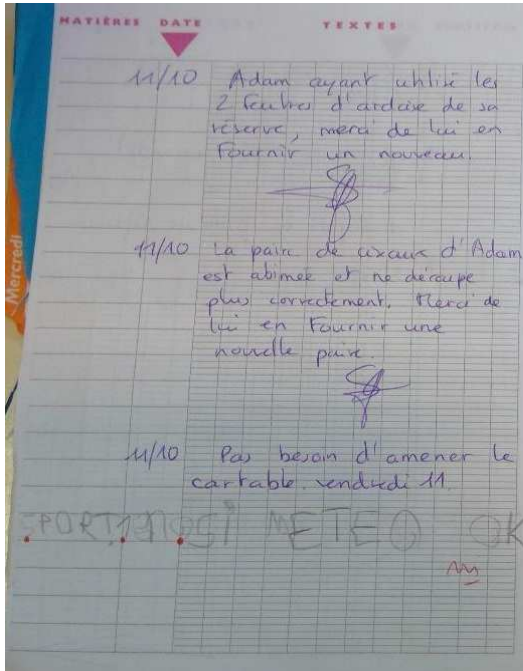 MATIÈRES DATE TEXTES
11/10 Adam ayant utilisé les
2 feutres d'ardoise de sa
réserve, merci de lui en
Fournir un nouveau
11/10 La paire de ciseaux d'Adam
est abimée et ne découpe
plus correctement. Merci de
lui en Fournir une
nouvelle paire.
11/10 Pas besoin d'amener le
cartable vendredi 11.
SPORT SI METEO OK
Mercredi